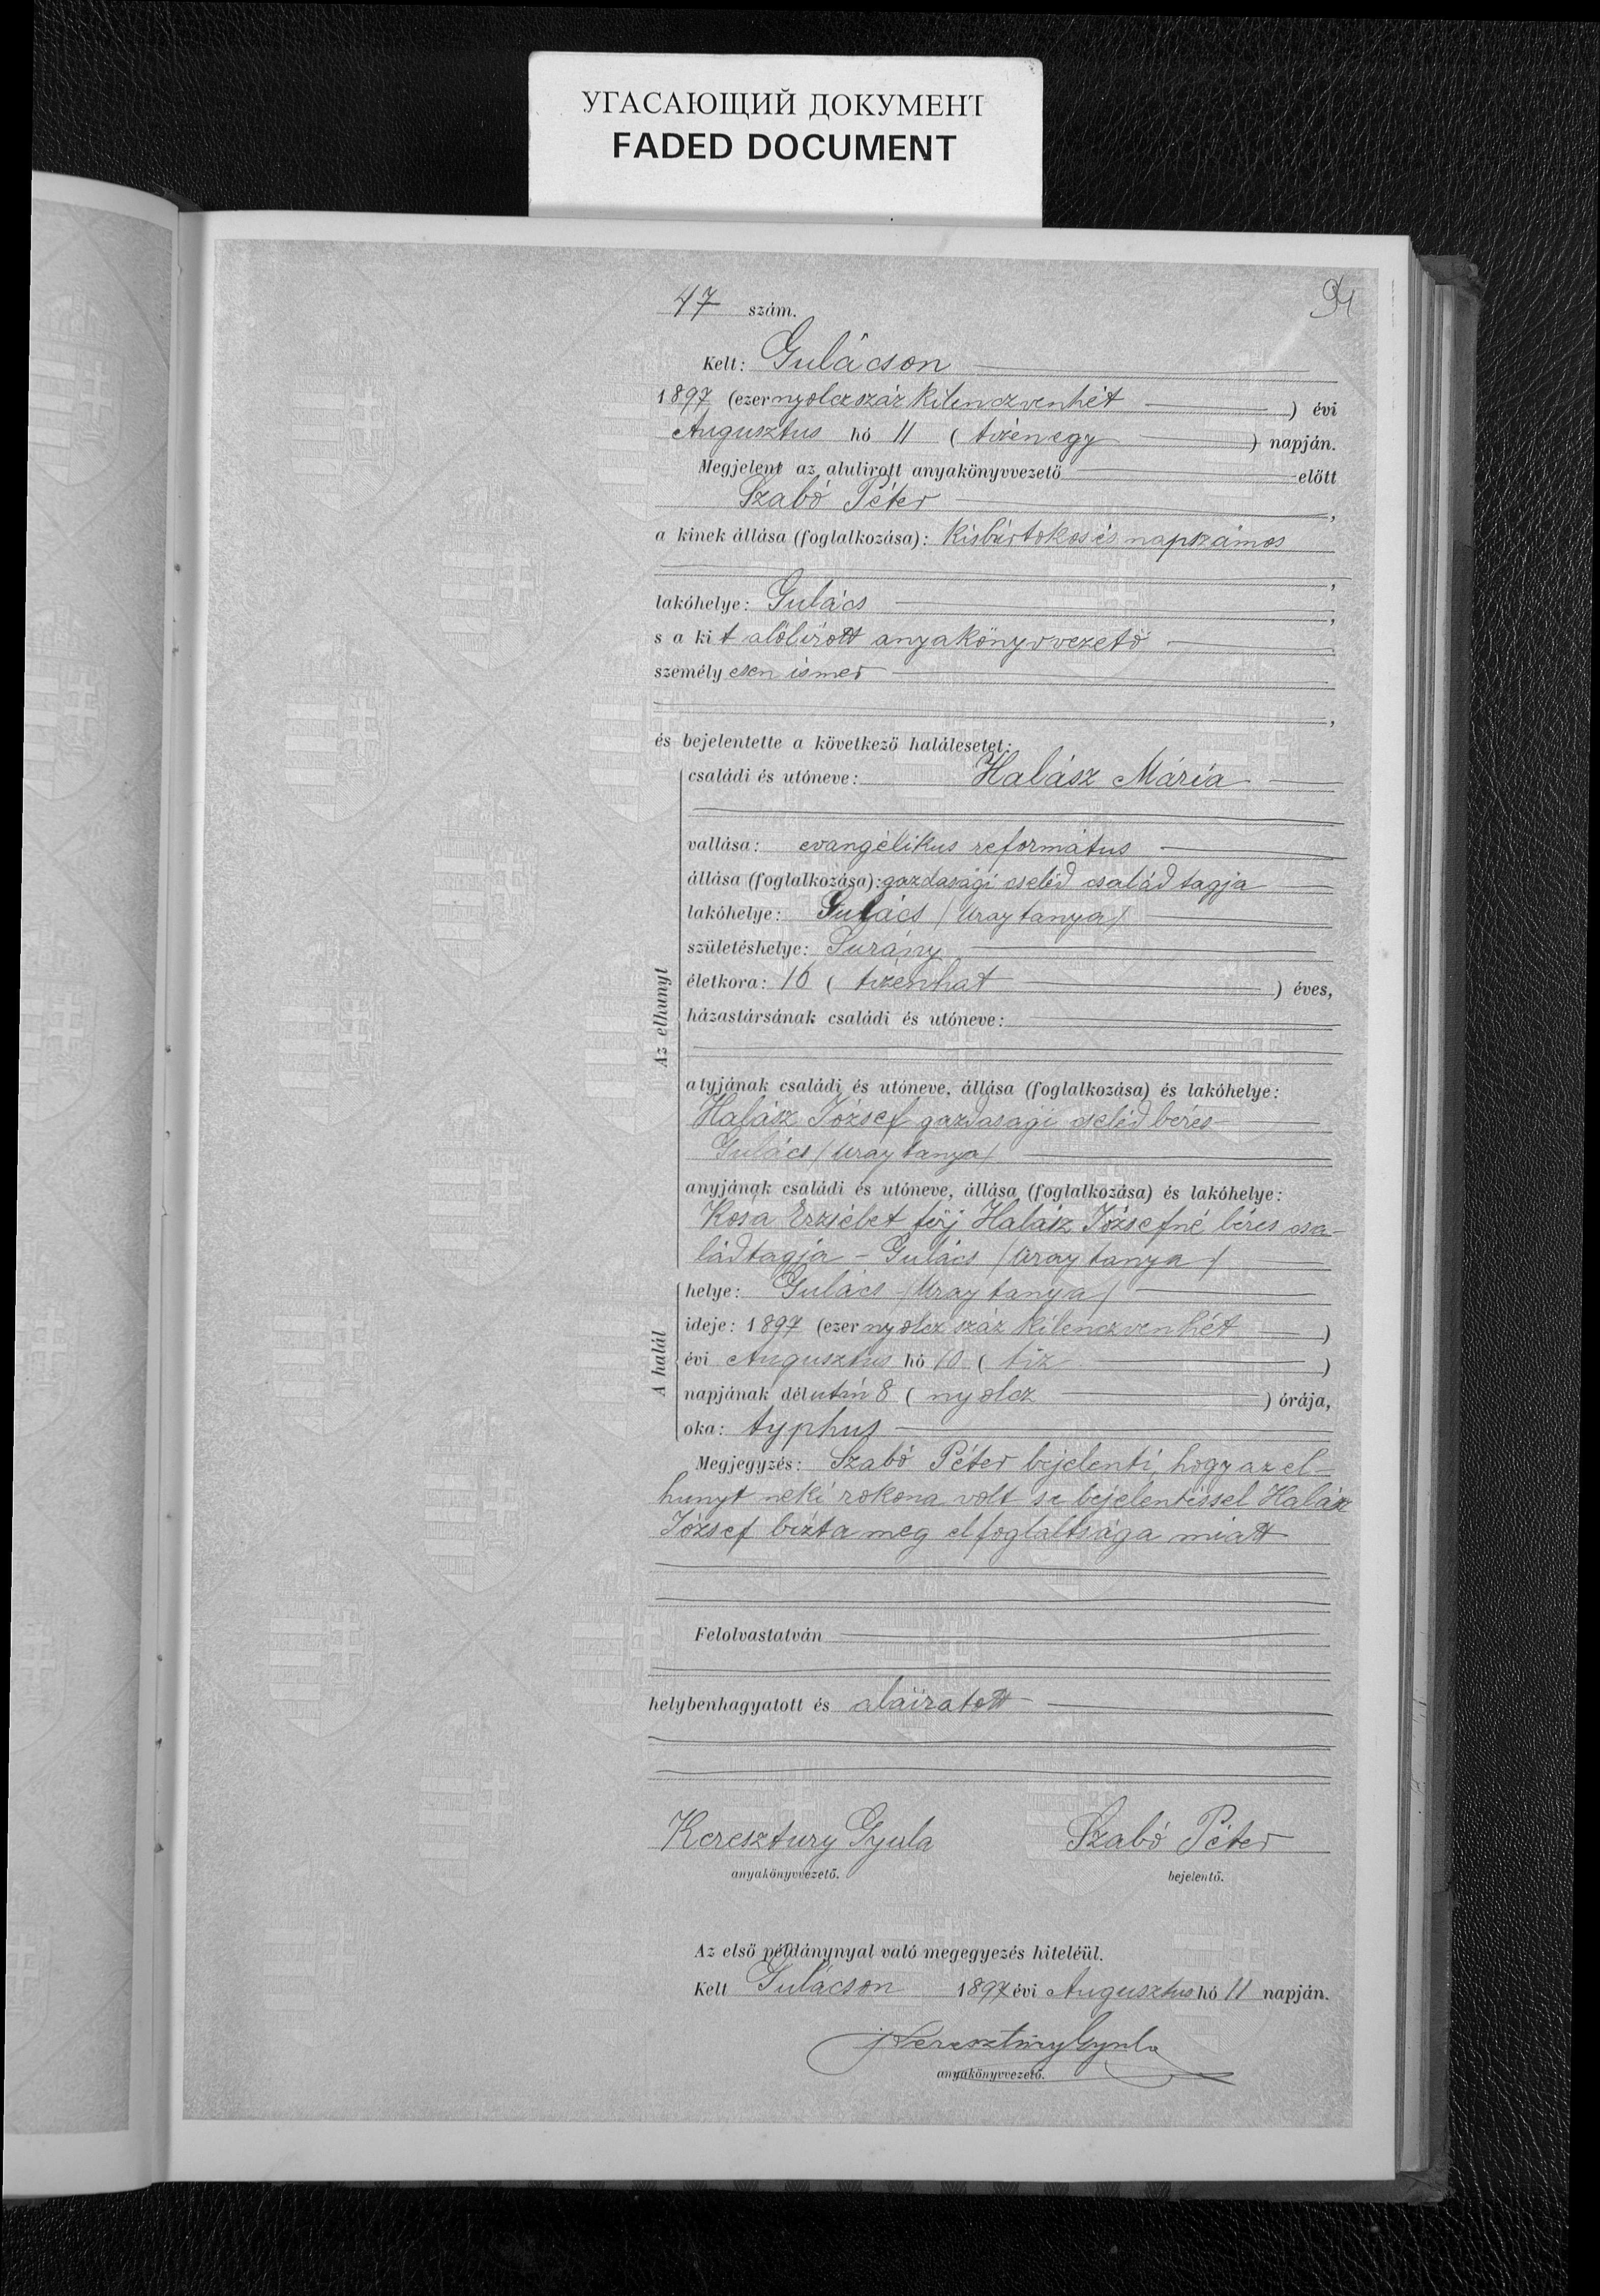 УГАСАЮЩИЙ ДОКУМЕНТ
FADED DOCUMENT
94
47 szám.
Kelt: Gulácson
1897 (ezernyolczszáz kilenczvenhét) évi
Augusztus hó 11 (tizenegy) napján.
Megjelent az alulirott anyakönyvvezető előtt
Szabó Péter,
a kinek állása (foglalkozása): kisbirtokos és napszámos
,
lakóhelye: Gulács,
s a kit alólirott anyakönyvvezető
személyesen ismer
,
és bejelentette a következő halálesetet:
Az elhunyt
családi és utóneve: Halász Mária
vallása: evangélikus református
állása (foglalkozása): gazdasági cseléd család tagja
lakóhelye: Gulács (Uray tanya)
születéshelye: Surány
életkora: 16 (tizenhat) éves,
házastársának családi és utóneve:
atyjának családi és utóneve, állása (foglalkozása) és lakóhelye:
Halász József gazdasági cseléd béres
Gulács (Uray tanya)
anyjának családi és utóneve, állása (foglalkozása) és lakóhelye:
Kósa Erzsébet férj Halász Józsefné béres csa-
ládtagja - Gulács (Uray tanya)
A halál
helye: Gulács (Uray tanya)
ideje: 1897 (ezernyolcz száz kilenczvenhét)
évi Augusztus hó 10 (tiz)
napjának délután 8 (nyolcz) órája,
oka: typhus
Megjegyzés: Szabó Péter bejelenti, hogy az el-
hunyt neki rokona volt s e bejelentéssel Halász
József bizta meg elfoglaltsága miatt
Felolvastatván
helybenhagyatott és aláiratott
Keresztury Gyula Szabó Péter
anyakönyvvezető. bejelentő.
Az első példánynyal való megegyezés hiteléül.
Kelt Gulácson 1897 évi Augusztus hó 11 napján.
Keresztury Gyula
anyakönyvvezető.